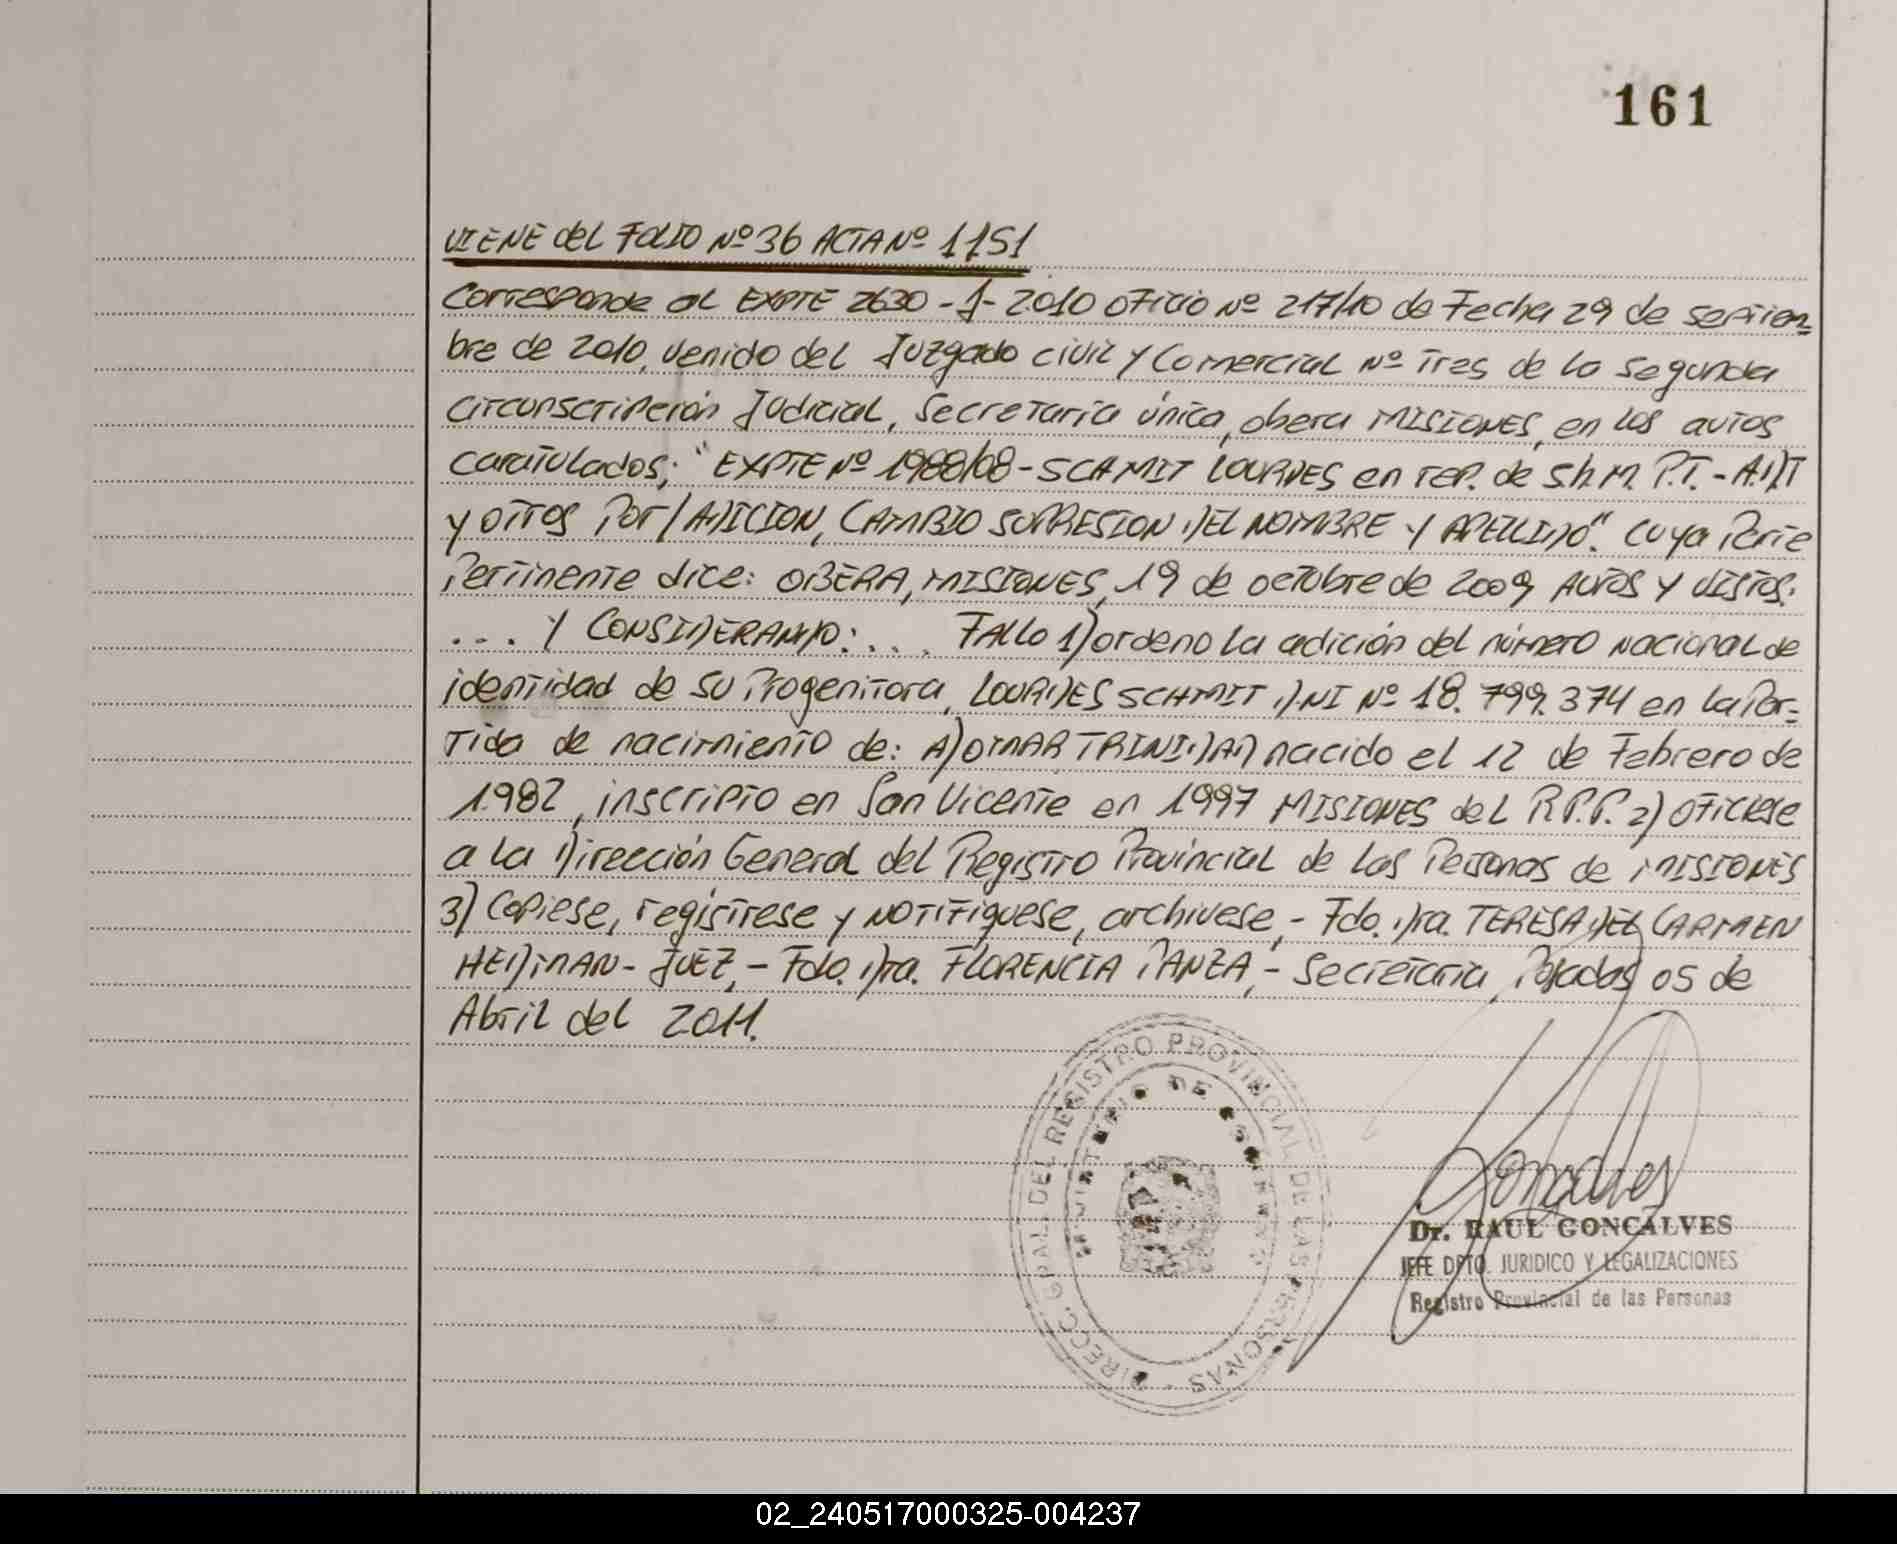 161
VIENE del FOLIO Nº 36 ACTA Nº 1151
Corresponde al EXPTE 2630-J-2010 oficio Nº 217/10 de Fecha 29 de septiem=
bre de 2010, venido del Juzgado civil y Comercial Nº Tres de la segunda
circunscripción Judicial, Secretaría única, obera MISIONES, en los autos
caratulados; "EXPTE Nº 1988/08-SCHMIT LOURDES en rep. de S.h.M. P.T.-A.D.T
y otros Por/ADICION, CAMBIO SUPRESION DEL NOMBRE Y APELLIDO". cuya Parte
Pertinente dice: OBERA, MISIONES, 19 de octubre de 2009 AUTOS Y VISTOS:
.... Y CONSIDERANDO: .... FALLO 1) ordeno la adición del número nacional de
identidad de su Progenitora, LOURDES SCHMIT D.NI Nº 18.799.374 en la Par=
tida de nacimiento de: A) OMAR TRINIDAD nacido el 12 de Febrero de
1.982, inscripto en San Vicente en 1997 MISIONES del R.P.P. 2) Oficiese
a la Dirección General del Registro Provincial de las Personas de MISIONES
3) Copiese, regístrese y NOTIFiquese, archivese,- Fdo. Dra. TERESA DEL CARMEN
HEDMAN- JUEZ,- Fdo. Dra. FLORENCIA PANZA,- Secretaria, Posadas 05 de
Abril del 2011.
DIRECC. GRAL. DEL REGISTRO PROVINCIAL DE LAS PERSONAS
MINISTERIO DE GOBIERNO
Goncalves
Dr. RAUL GONCALVES
JEFE DPTO. JURIDICO Y LEGALIZACIONES
Registro Provincial de las Personas
02_240517000325-004237